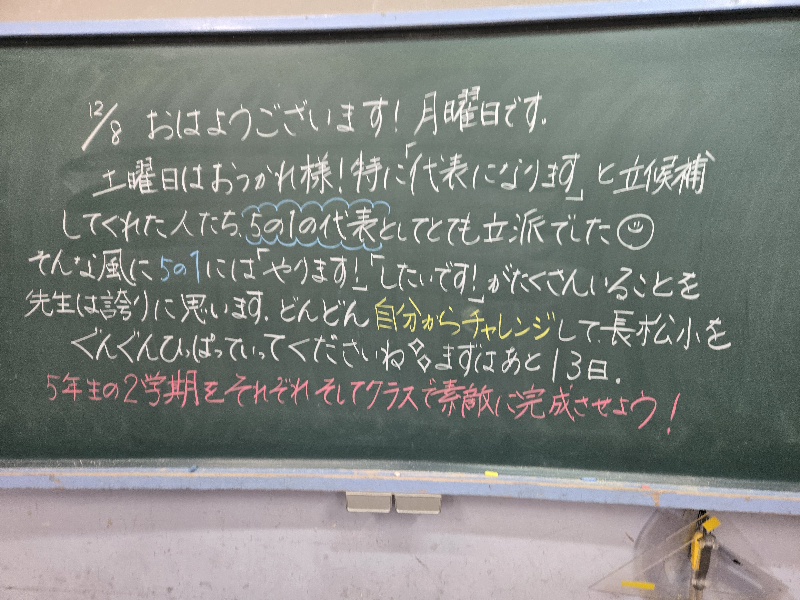 12/8 おはようございます！月曜日です．
土曜日はおつかれ様！特に「代表になります」と立候補
してくれた人たち、5の1の代表としてとても立派でした
そんな風に5の1には「やります！」「したいです！」がたくさんいることを
先生は誇りに思います．どんどん自分からチャレンジして、長松小を
ぐんぐんひっぱっていってくださいね まずはあと13日．
5年生の2学期をそれぞれそしてクラスで素敵に完成させよう！